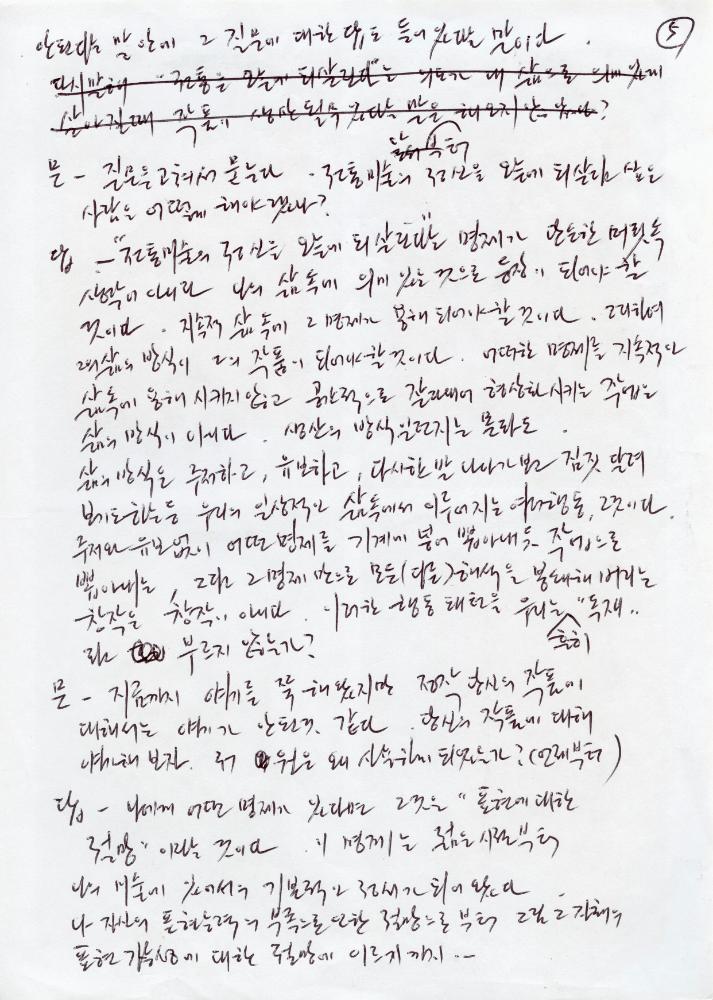 ⑤
안된다는 말 안에 그 질문에 대한 답도 들어있다는 말이다.
다시말해 "전통을 오늘에 되살린다"는 의도가 내 삶으로 의미있게
살아질때 작품이 생산될수 있다는 말을 해오지 않았나?
부터
문 - 질문을 고쳐서 묻는다. 전통미술의 정신을 오늘에 되살리고 싶은
사람은 어떻게 해야 겠는가?
답 - "전통미술의 정신을 오늘에 되살린다"는 명제가 단순한 머릿속
생각이 아니다 나의 삶속에 의미 있는 것으로 등장이 되어야 할
것이다. 지속적 삶속에 그 명제가 용해 되어야 할 것이다. 그리하여
그의 삶의 방식이 그의 작품이 되어야 할 것이다. 어떠한 명제를 지속적인
삶속에 용해시키지 않고 공간적으로 잘라내어 형상화 시키는 작업은
삶의 방식이 아니다. 생산의 방식일런지는 몰라도.
삶의 방식을 주저하고, 유보하고, 다시한발 나아가보고 짐짓 달려
보기도 하는 등 우리의 일상적인 삶속에서 이루어지는 여러행동, 그것이다.
주저와 유보없이 어떤 명제를 기계에 넣어 뽑아내듯 작업으로
뽑아내는, 그리고 그 명제 만으로 모든(다른)해석을 봉쇄해 버리는
창작은 창작이 아니다. 이러한 행동 패턴을 우리는 "독재"
흔히
라고 부르지 않는가?
문 - 지금까지 얘기를 쭉 해왔지만 정작 당신의 작품에
대해서는 얘기가 안된것 같다. 당신의 작품에 대해
얘기해 보자. 원은 왜 사용하게 되었는가? (언제부터)
답 - 나에게 어떤 명제가 있다면 그것은 "표현에 대한
절망" 이라는 것이다. 이 명제는 젊은 시절부터
나의 미술에 있어서의 기본적인 정서가 되어 왔다
나 자신의 표현능력의 부족으로 인한 절망으로 부터 그림 그 자체의
표현 가능성에 대한 절망에 이르기 까지 …